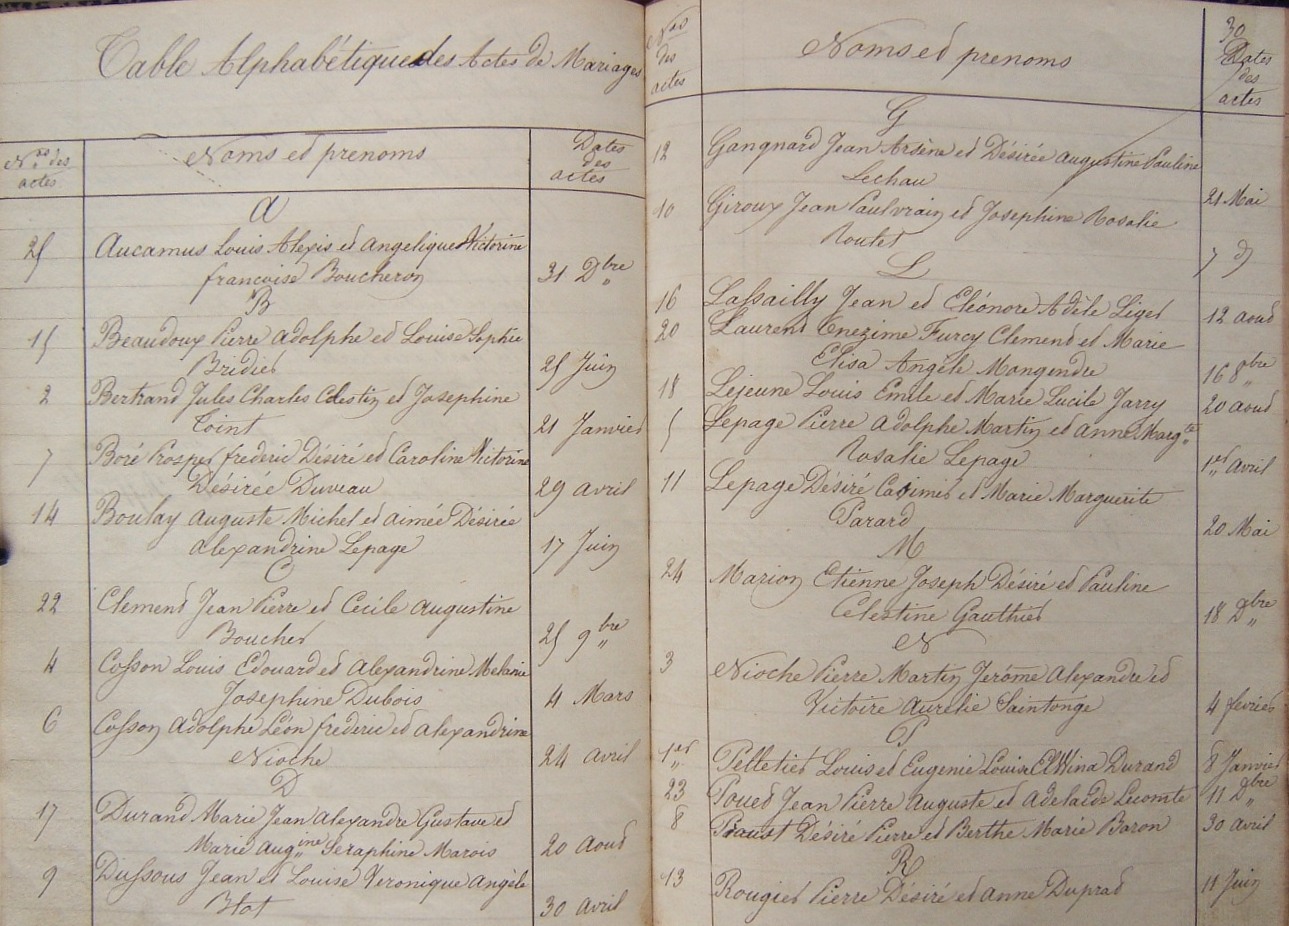 Table Alphabétique des Actes de Mariages
Nos des actes
Noms et prenoms
Dates des actes
A
25 Aucamus Louis Alexis et Angelique Victorine
françoise Boucheron 31 Dbre
B
15 Beaudoux Pierre Adolphe et Louise Sophie
Bridier 25 Juin
2 Bertrand Jules Charles Celestin et Josephine
Toint 21 Janvier
7 Boré Prosper frederic Desiré et Caroline Victorine
Désirée Duveau 29 avril
14 Boulay Auguste Michel et aimée Désirée
Alexandrine Lepage 17 Juin
C
22 Clement Jean Pierre et Cécile Augustine
Boucher 25 9bre
4 Cosson Louis Edouard et Alexandrine Melanie
Josephine Dubois 4 Mars
6 Cosson Adolphe Léon frederic et Alexandrine
Nioche 24 avril
D
17 Durand Marie Jean Alexandre Gustave et
Marie Augine Seraphine Marois 20 Aout
9 Dussous Jean et Louise Veronique Angèle
Blot 30 avril
30
Nos des actes
Noms et prenoms
Dates des actes
G
12 Gangnard Jean Arsène et Désirée Augustine Pauline
Lechau 21 Mai
10 Giroux Jean Paul et Josephine Rosalie
Routet 7 d
L
16 Lassailly Jean et Eléonore Adèle Liger 12 aout
20 Laurent Furcy Clement et Marie
Elisa Angèle Mongendre 16 8bre
18 Lejeune Louis Emile et Marie Lucile Jarry 20 aout
5 Lepage Pierre Adolphe Martin et Anne Margte
Rosalie Lepage 1er Avril
11 Lepage Désiré Casimir et Marie Marguerite
Parard 20 Mai
M
24 Marion Etienne Joseph Désiré et Pauline
Celestine Gauthier 18 Dbre
N
3 Nioche Pierre Martin Jerôme Alexandre et
Victoire Aurelie Saintonge 4 fevrier
P
1er Pelletier Louis et Eugenie Louise Elwina Durand 8 Janvier
23 Pouet Jean Pierre Auguste et Adelaide Lecomte 11 Dbre
8 Proust Désiré Pierre et Berthe Marie Baron 30 avril
R
13 Rougier Pierre Désiré et Anne Duprat 11 Juin